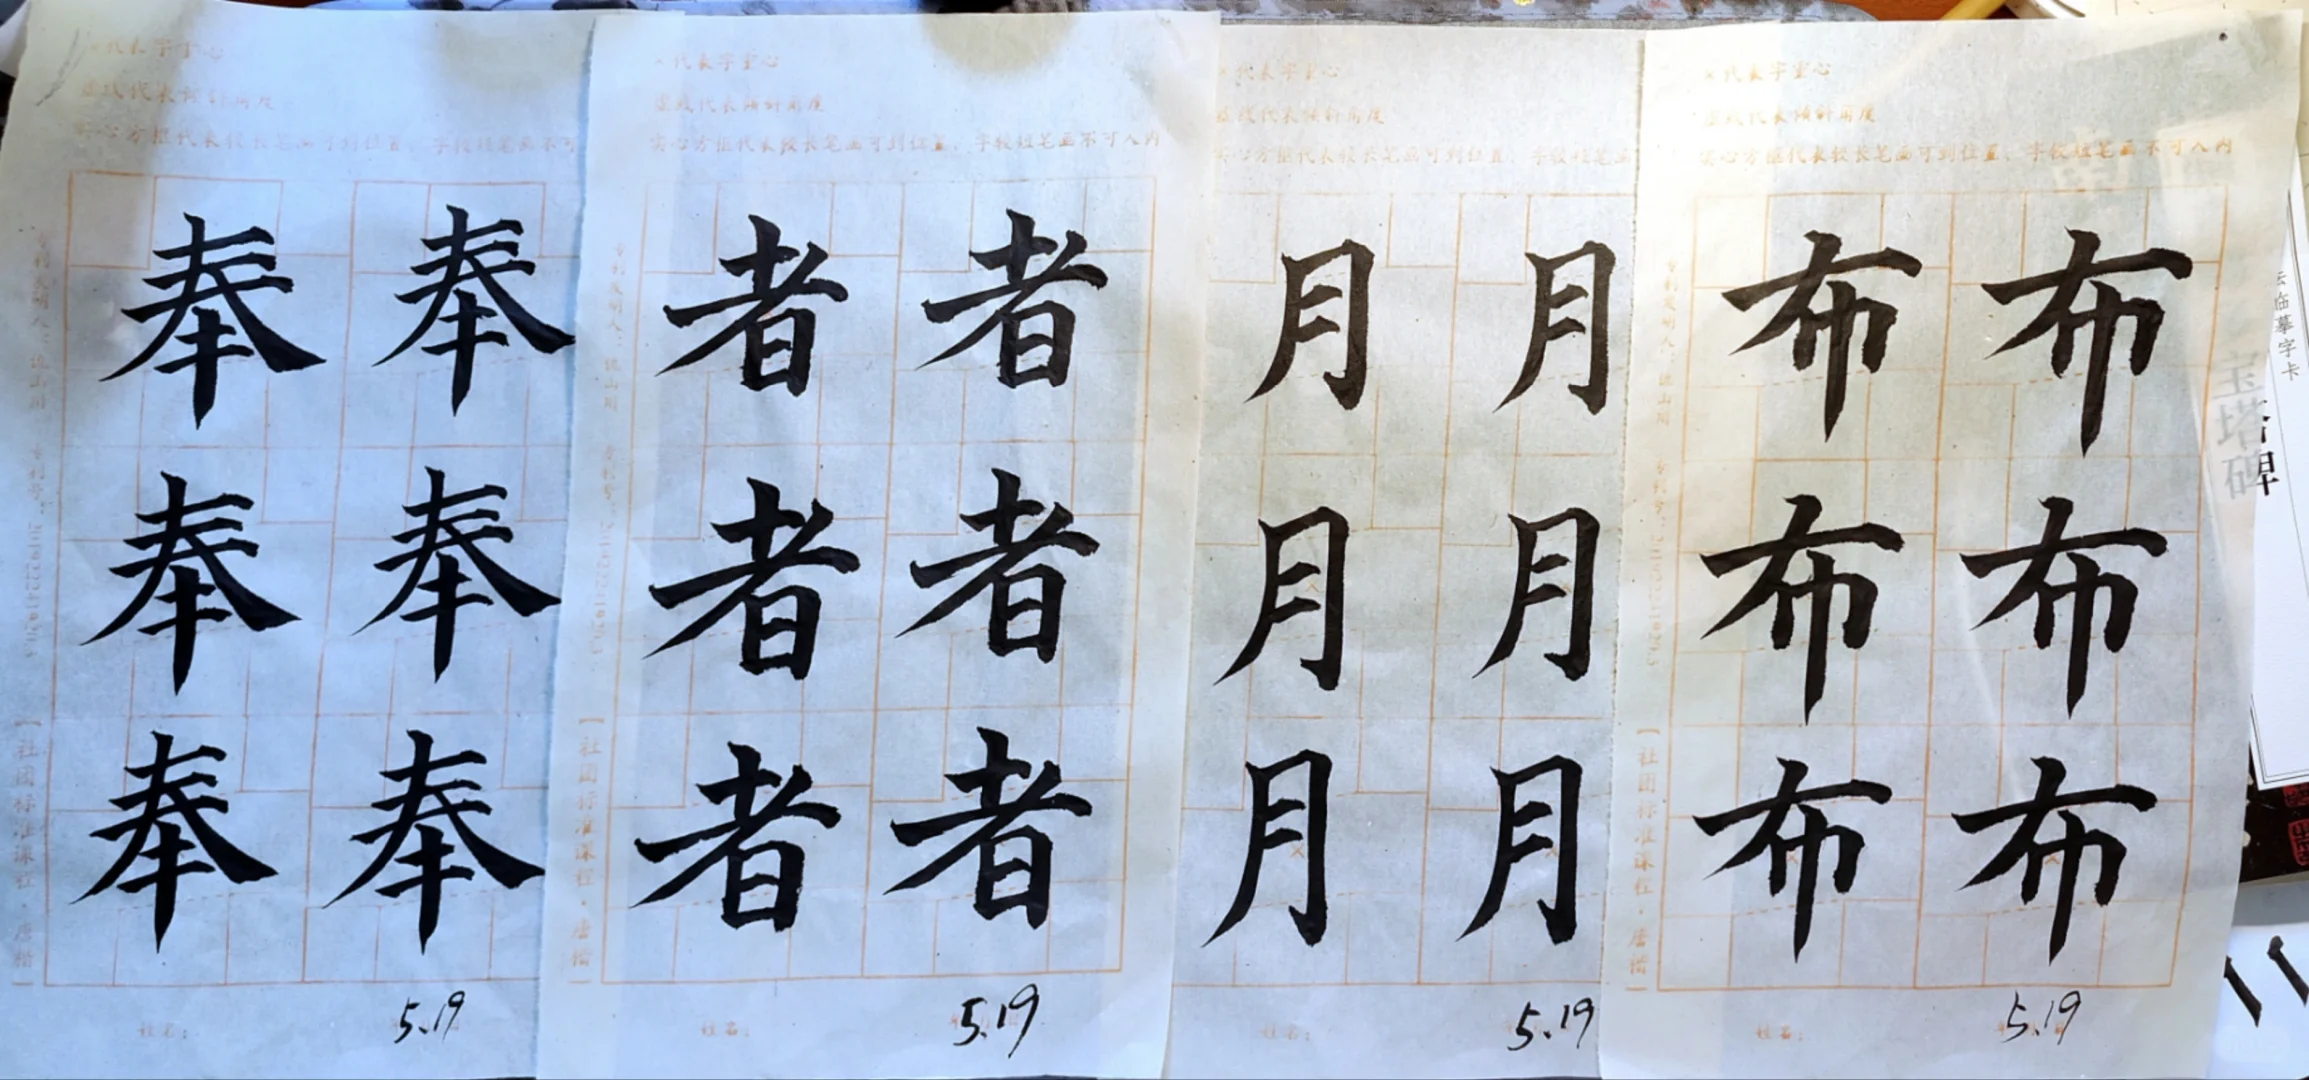 代表字重心
虚线代表倾斜角度
实心方框代表较长笔画可到位置,字较短笔画不可
奉 奉
奉 奉
奉 奉
【社团标准课程·唐楷】
姓名:
5.19
×代表字重心
虚线代表倾斜角度
实心方框代表较长笔画可到位置,字较短笔画不可入内
者 者
者 者
者 者
【社团标准课程·唐楷】
姓名:
5.19
×代表字重心
虚线代表倾斜角度
实心方框代表较长笔画可到位置,字较短笔画
月 月
月 月
月 月
姓名:
5.19
×代表字重心
虚线代表倾斜角度
实心方框代表较长笔画可到位置,字较短笔画不可入内
布 布
布 布
布 布
【社团标准课程·唐楷】
姓名:
5.19
临摹字卡
宝塔碑